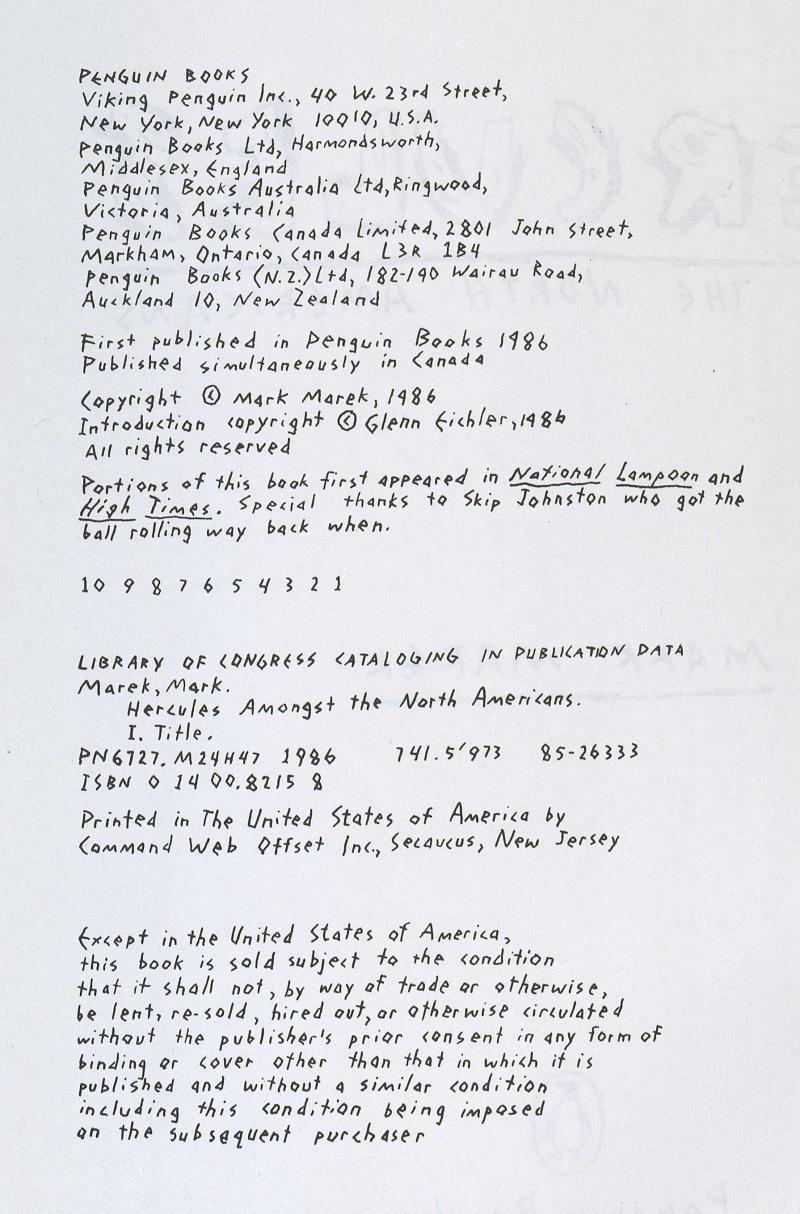 PENGUIN BOOKS
Viking Penguin Inc., 40 W. 23rd Street,
New York, New York 10010, U.S.A.
Penguin Books Ltd, Harmondsworth,
Middlesex, England
Penguin Books Australia Ltd, Ringwood,
Victoria, Australia
Penguin Books Canada Limited, 2801 John Street,
Markham, Ontario, Canada L3R 1B4
Penguin Books (N.Z.) Ltd, 182-190 Wairau Road,
Auckland 10, New Zealand
First published in Penguin Books 1986
Published simultaneously in Canada
Copyright © Mark Marek, 1986
Introduction copyright © Glenn Eichler, 1986
All rights reserved
Portions of this book first appeared in National Lampoon and
High Times. Special thanks to Skip Johnston who got the
ball rolling way back when.
10 9 8 7 6 5 4 3 2 1
LIBRARY OF CONGRESS CATALOGING IN PUBLICATION DATA
Marek, Mark.
Hercules Amongst the North Americans.
I. Title.
PN6727. M24H47 1986 741.5'973 85-26333
ISBN 0 14 00.8215 8
Printed in The United States of America by
Command Web Offset Inc., Secaucus, New Jersey
Except in the United States of America,
this book is sold subject to the condition
that it shall not, by way of trade or otherwise,
be lent, re-sold, hired out, or otherwise circulated
without the publisher's prior consent in any form of
binding or cover other than that in which it is
published and without a similar condition
including this condition being imposed
on the subsequent purchaser